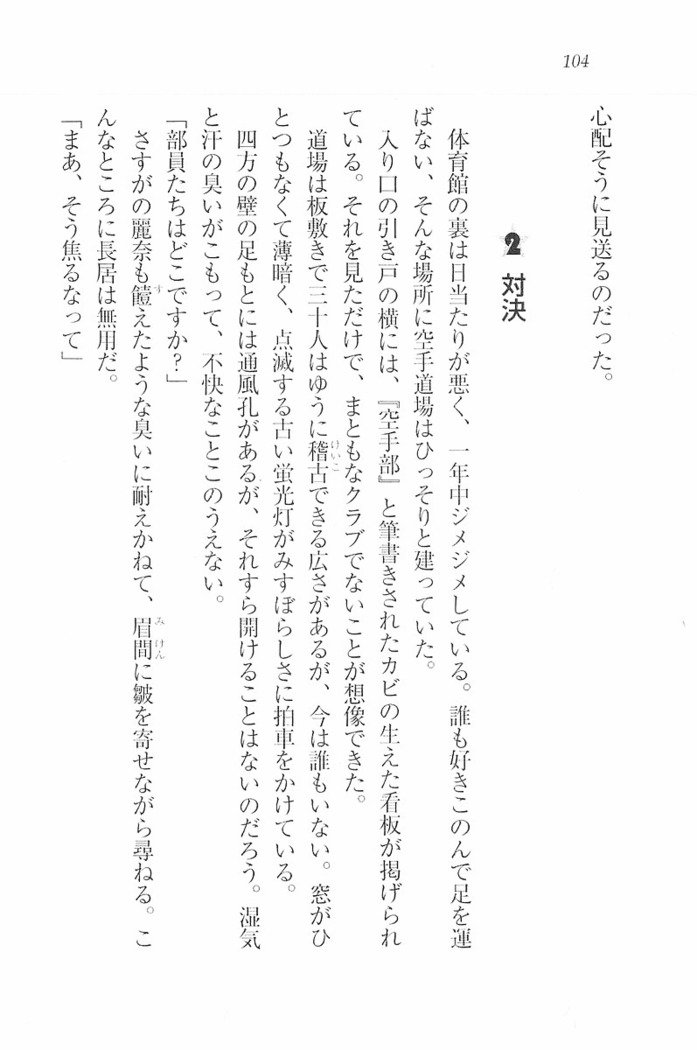 104
心配そうに見送るのだった。
2 対決
体育館の裏は日当たりが悪く、一年中ジメジメしている。誰も好きこのんで足を運
ばない、そんな場所に空手道場はひっそりと建っていた。
入り口の引き戸の横には、『空手部』と筆書きされたカビの生えた看板が掲げられ
ている。それを見ただけで、まともなクラブでないことが想像できた。
道場は板敷きで三十人はゆうに稽古できる広さがあるが、今は誰もいない。窓がひ
とつもなくて薄暗く、点滅する古い蛍光灯がみすぼらしさに拍車をかけている。
四方の壁の足もとには通風孔があるが、それすら開けることはないのだろう。湿気
と汗の臭いがこもって、不快なことこのうえない。
「部員たちはどこですか？」
さすがの麗奈も饐えたような臭いに耐えかねて、眉間に皺を寄せながら尋ねる。こ
んなところに長居は無用だ。
「まあ、そう焦るなって」